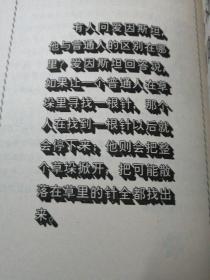 有人问爱因斯坦,
他与普通人的区别在哪
里?爱因斯坦回答说,
如果让一个普通人在草
垛里寻找一银针,那个
人在找到一银针以后就
会停下来;他则会把整
个草垛掀开,把可能散
落在草里的针全都找出
来。